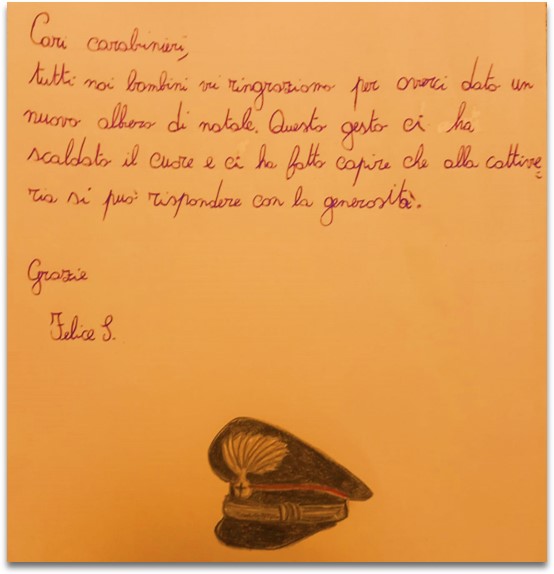 Cari carabinieri,
tutti noi bambini vi ringraziamo per averci dato un
nuovo albero di natale. Questo gesto ci ha
scaldato il cuore e ci ha fatto capire che alla cattive
ria si può rispondere con la generosità.
Grazie
Felice S.